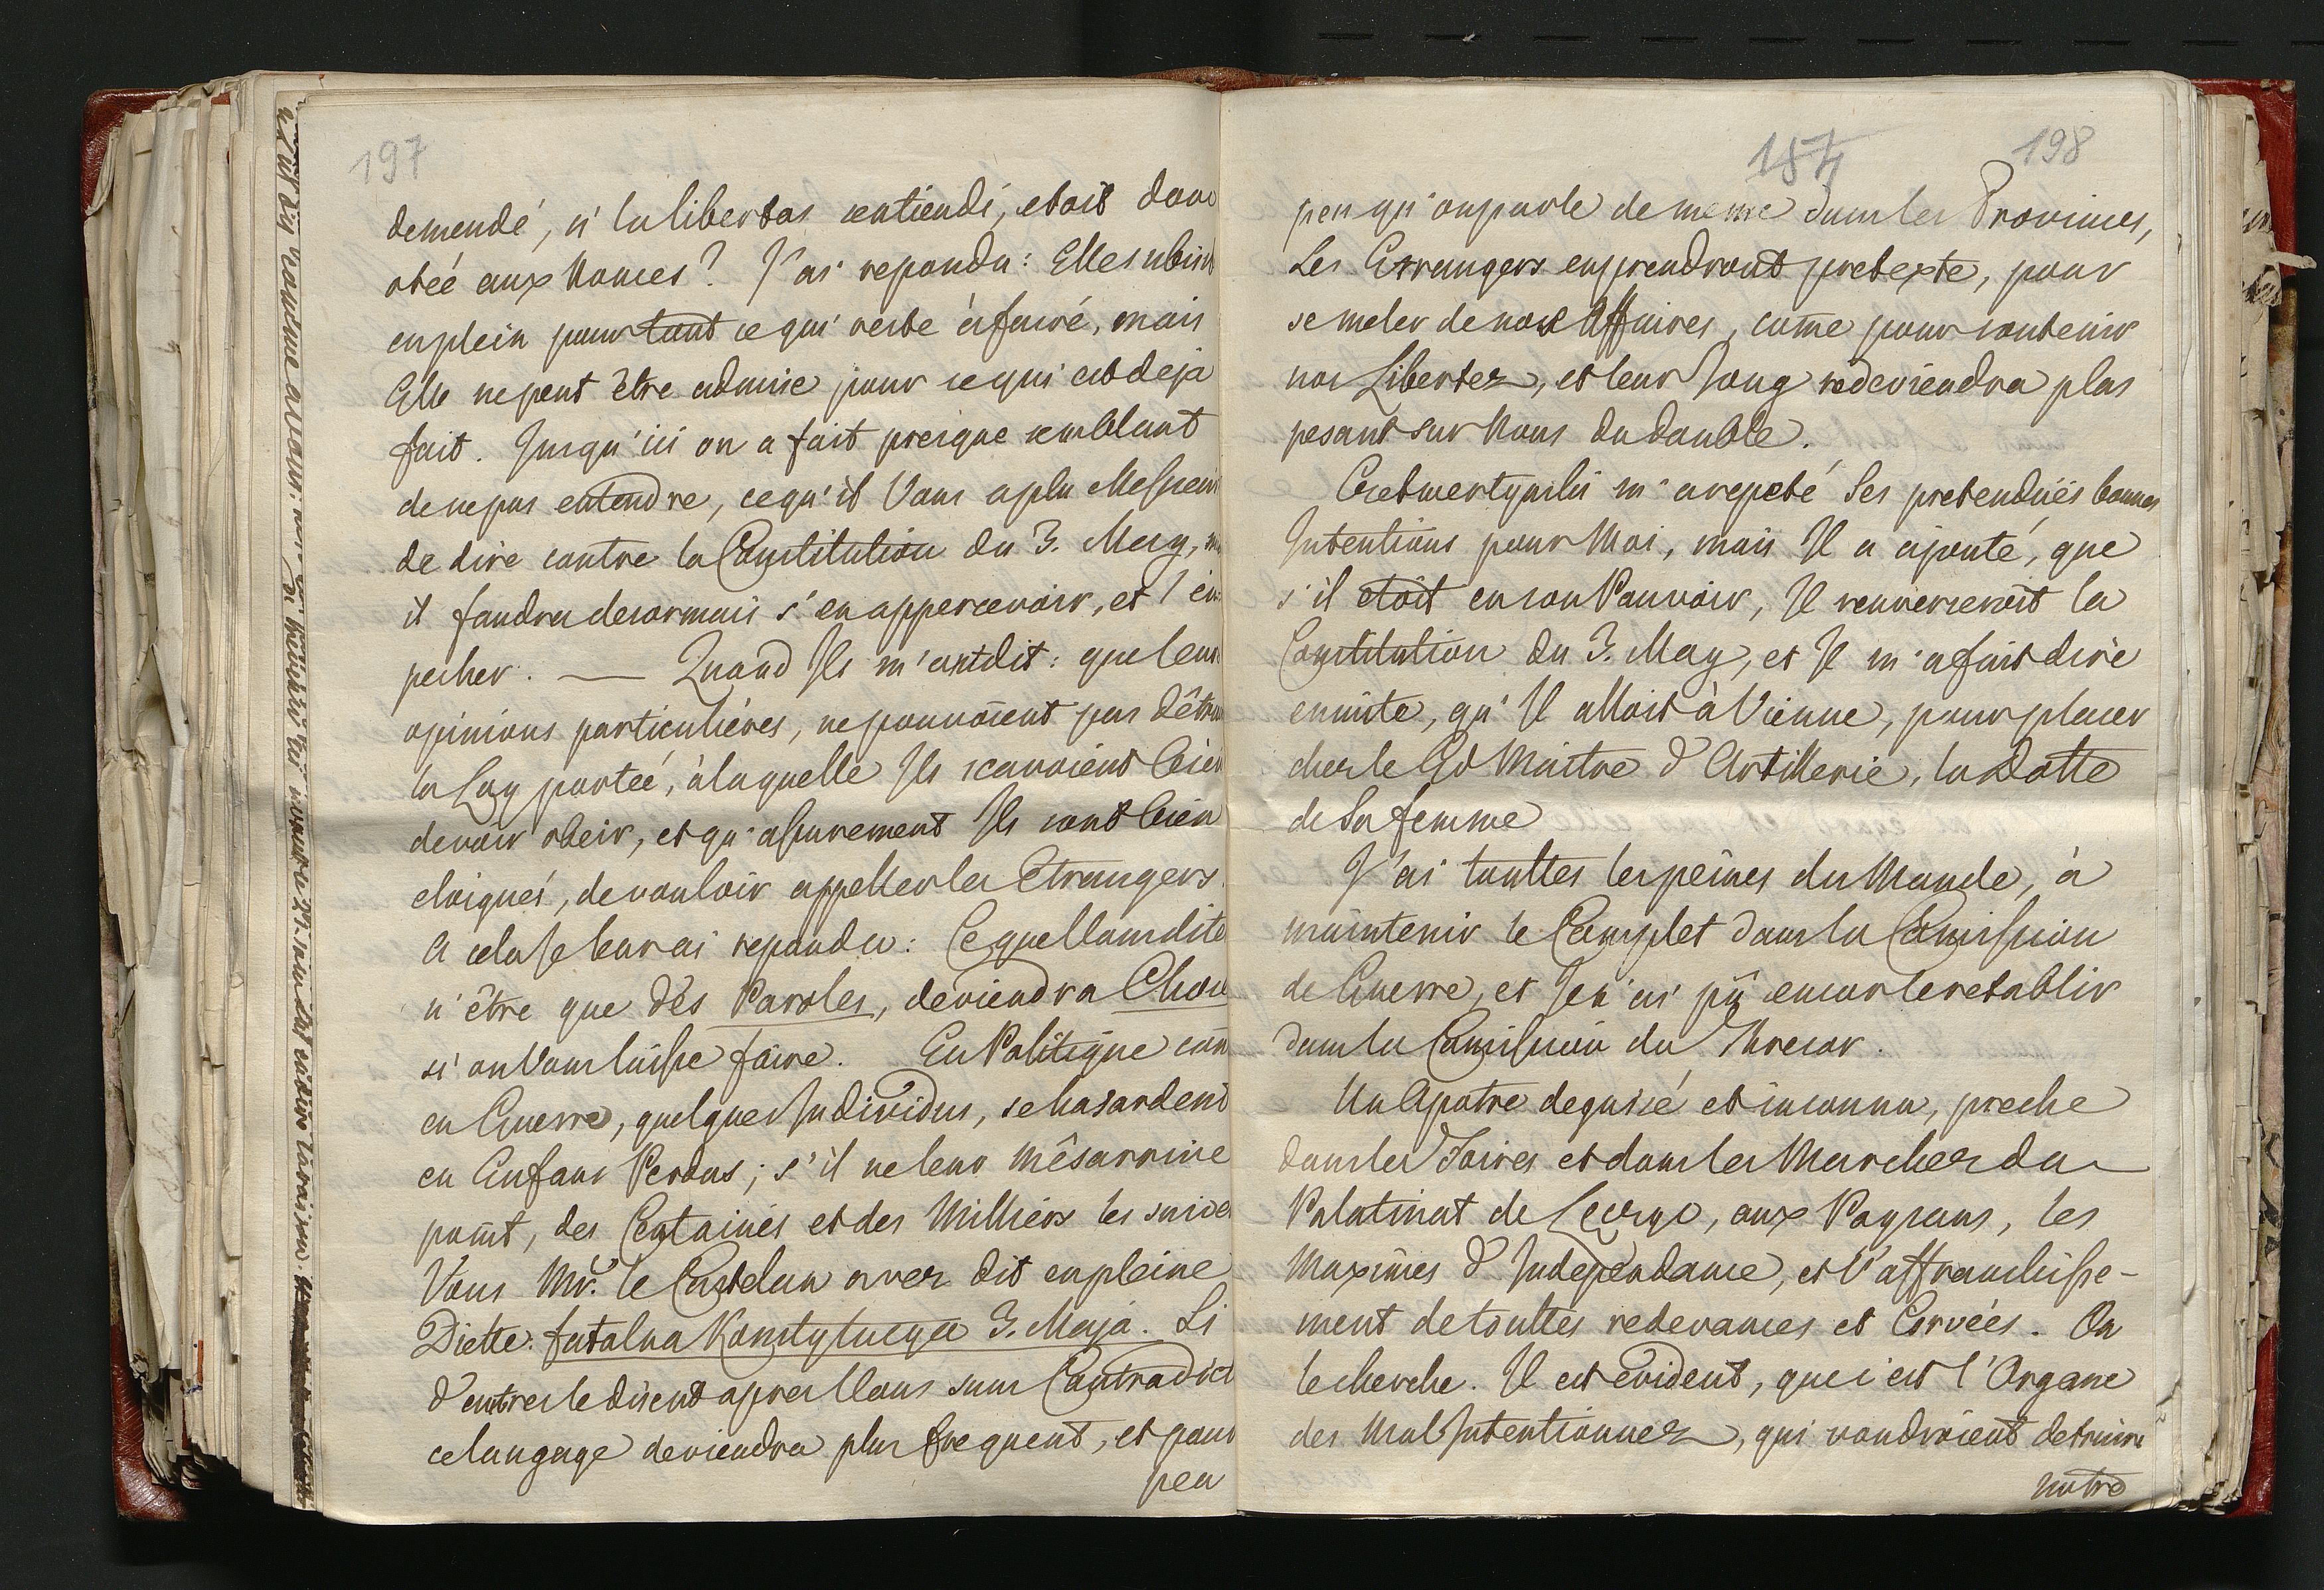 197
demendé, si la libertas sentiendi, etoit donc
otée aux Nonces? J'ai repondu: Elle subsist
en plein pour tout ce qui reste à faire, mais
Elle ne peut être admise pour ce qui est deja
fait. Jusqu'ici on a fait presque semblant
de ne pas entendre, ce qu'il Vous a plu Messieurs
de dire contre la Constitution du 3. May, m
il faudra desormais s'en appercevoir, et l'em
pecher. — Quand Ils m'ont dit: que leurs
opinions particulières, ne pouvoient pas détru
la Loy portée, à laquelle Ils scavoient bien
devoir obeir, et qu'assurement Ils sont bien
eloignés, de vouloir appeller les Etrangers.
A cela Je leur ai repondu: Ce que Vous dite
n'être que des Paroles, deviendra Chose
si on Vous laisse faire. En Politique com
en Guerre, quelques Individus, se hasardent
en Enfans Perdus; s'il ne leur mêsarrive
point, des Centaines et des Milliers les suive
Vous Mr. le Castelan avez dit en pleine
Diette: fatalna Konstytucya 3. Maja. Si
d'entres le disent apres Vous sans Contradict
ce langage deviendra plus frequent, et pour
peu
187 198
peu qu'on parle de meme dans les Provinces,
Les Etrangers en prendront pretexte, pour
se meler de nos Affaires, come pour soutenir
nos Libertez, et leur Joug redeviendra plus
pesant sur Nous du double.
Czetwertynski m'a repeté Ses pretendües bonnes
Intentions pour Moi, mais Il a ajouté, que
s'il etoit en son Pouvoir, Il renverseroit la
Constitution du 3. May, et Il m'a fait dire
ensuite, qu'Il alloit à Vienne, pour placer
chez le Gd Maitre d'Artillerie, la Dotte
de Sa femme
J'ai touttes les peines du Monde, à
maintenir le Complet dans la Comission
de Guerre, et Je n'ai pû encor le retablir
dans la Comission du Thresor.
Un Apotre deguisé et inconnu, preche
dans les Foires et dans les Marchez du
Palatinat de Leczyc, aux Paysans, les
Maximes d'Independance, et l'affranchisse-
ment de touttes redevances et Corvées. On
le cherche. Il est evident, que c'est l'Organe
des Mal Intentionnez, qui voudroient detruire
notre